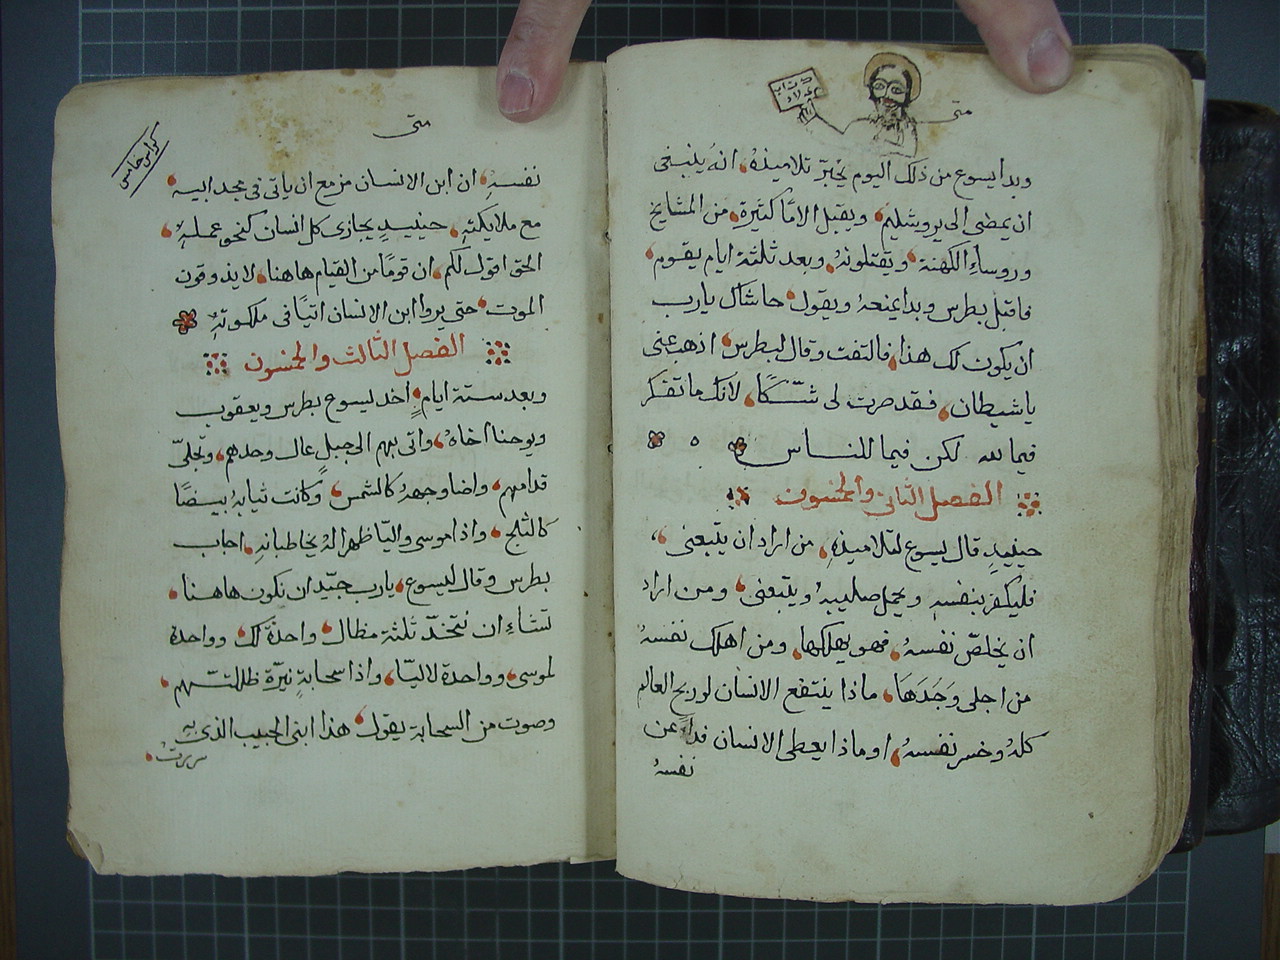 متى
وبدا يسوع من ذلك اليوم يخبر تلاميذهُ، انهُ ينبغى
ان يمضى الى يروشليم، ويقبل الامًا كثيرةٍ، من المشايخ
وروساءِ الكهنة، ويقتلونهُ، وبعد ثلثة ايام يقوم،
فاقبل بطرس وبدا يمنعهُ ويقول، حاشاك يارب
ان يكون لك هذا، فالتفت وقال لبطرس، اذهب عنى
ياشيطان، فقد صرت لى شكًا، لانك ما تفكر
فيما لله لكن فيما للنـاس
الفصل الثانى والخمسون
حينيدٍ قال يسوع لتلاميذهِ، من اراد ان يتبعنى،
فليكفر بنفسهِ ويحمل صليبهُ ويتبعنى، ومن اراد
ان يخلصّ نفسهُ، فهو يهلكها، ومن اهلك نفسهُ
من اجلى وَجَدَهَا، ماذا ينتفع الانسان لو ربح العالم
كلهُ وخسر نفسهُ، او ماذا يعطى الانسان فداءً عن
نفسهُ
متى
كراس خامس
نفسهِ، ان ابن الانسان مزمع ان ياتى فى مجد ابيه،
مع ملايكتهِ، حينيدٍ يجازى كل انسان كنحو عملهِ،
الحق اقول لكم، ان قومًا من القيام هاهنا، لايذوقون
الموت، حتى يروا ابن الانسان اتيًا فى ملكوتهِ
الفصل الثالث والخمسون
وبعد ستة ايامٍ، اخد ليسوع بطرس ويعقوب
ويوحنا اخاهُ، واتى بهم الى جبلٍ عالٍ وحدهم، وتجلىّ
قدامهم، واضا وجههُ كالشمس، وكانت ثيابهُ بيضًا
كالثلج، واذا موسى واليّا ظهرا لهُ يخاطبانهِ، اجاب
بطرس وقال ليسوع، يارب جيّد ان نكون هاهنا،
تشاءِ ان نُتخدّ ثلثة مظال، واحدةً لك، وواحدة
لموسى، وواحدة لاليّا، واذا سحابةٍ نيّرة ظللتهم،
وصوت من السحابة يقول، هذا ابنى الحبيب الذى بهِ
سررت،